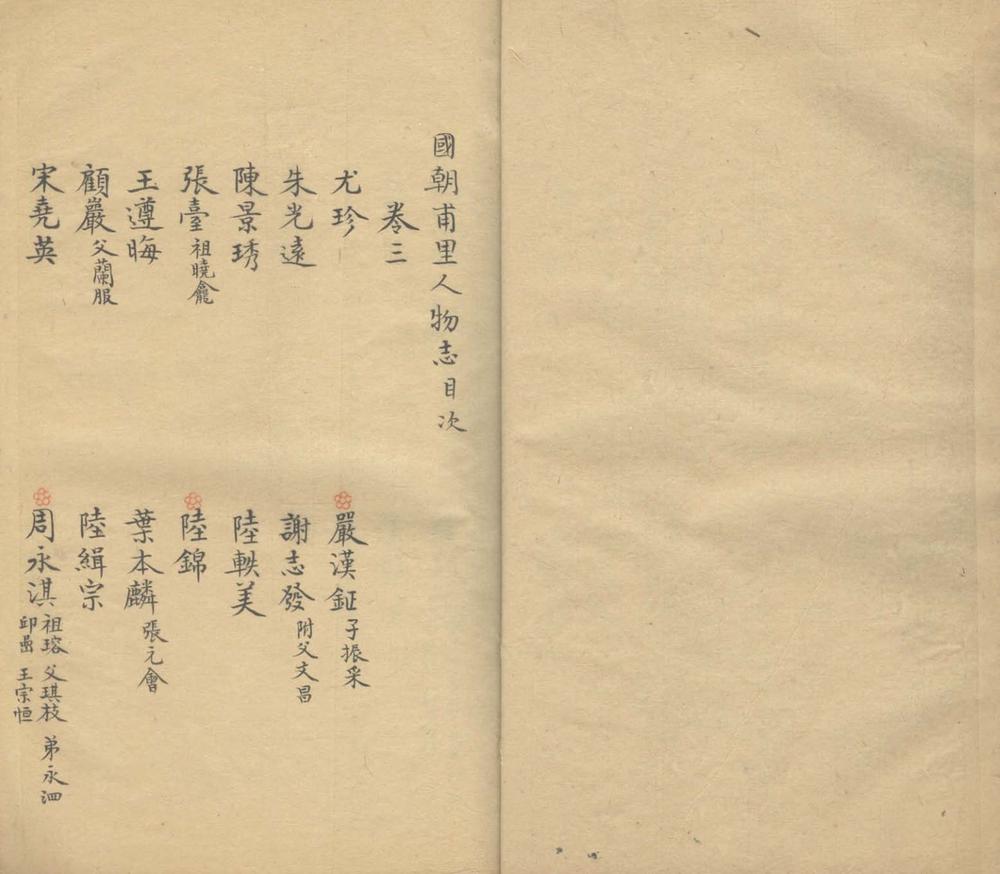 國朝甫里人物志目次
卷三
尤珍 嚴漢鉦 子振采
朱光遠 謝志發 附父文昌
陳景琇 陸軼美
張臺 祖曉龕 陸錦
王遵晦 葉本麟 張元會
顧嚴 父蘭服 陸緝宗
宋堯英 周永淇 祖瑢 父琪枝 弟永泗
邱 王宗恒